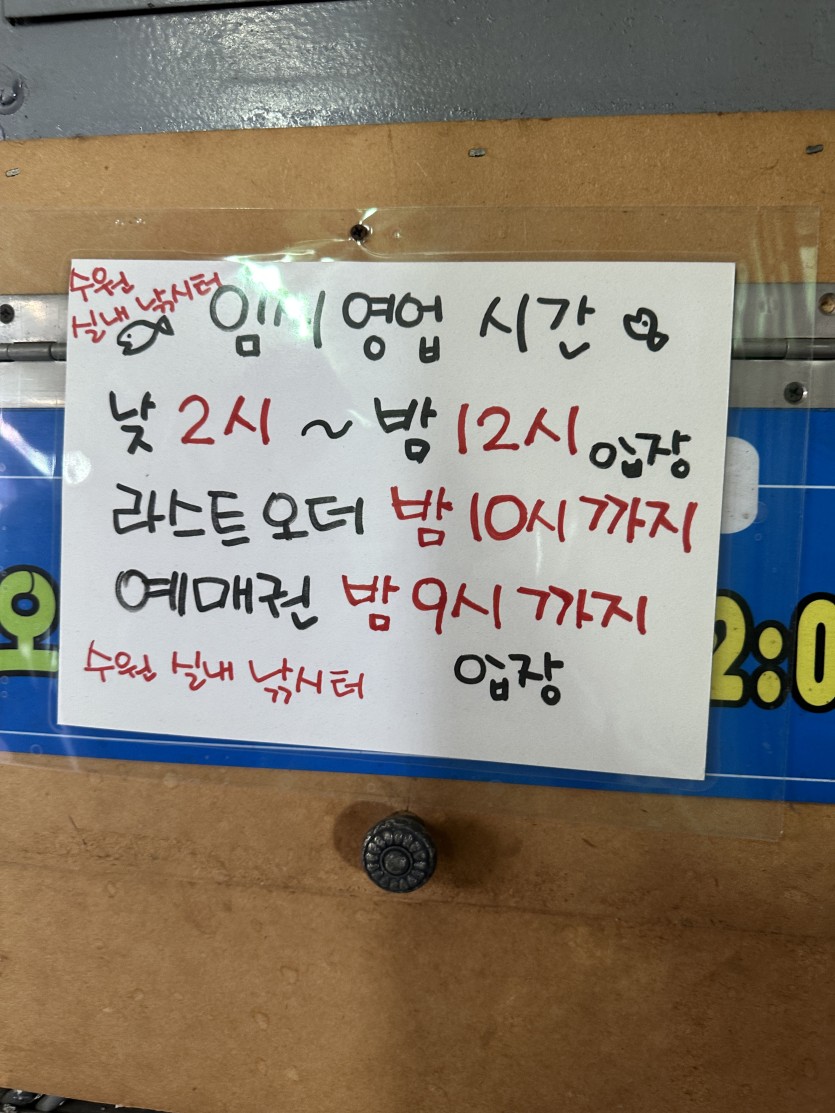 수원
실내 낚시터
임시 영업 시간
낮 2시 ~ 밤 12시 입장
라스트오더 밤 10시 까지
예매권 밤 9시 까지
입장
수원 실내 낚시터
2:0